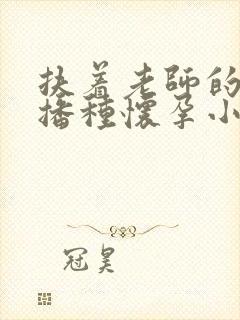 扶着老师的
播種懷孕小
冠昊